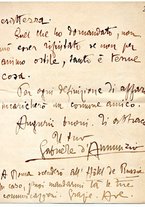 esattezza.
Quel che ho domandato, non
può esser rifiutato se non per
animo ostile, tanto è tenue
cosa.
Per ogni definizione di affari
incaricherò un comune amico.
Auguri buoni. Di
Il tuo
Gabriele d'Annunzio
A Roma scendi all' Hôtel de Russie
In caso, puoi mandarmi là le tue
comunicazioni. Grazie. Ave